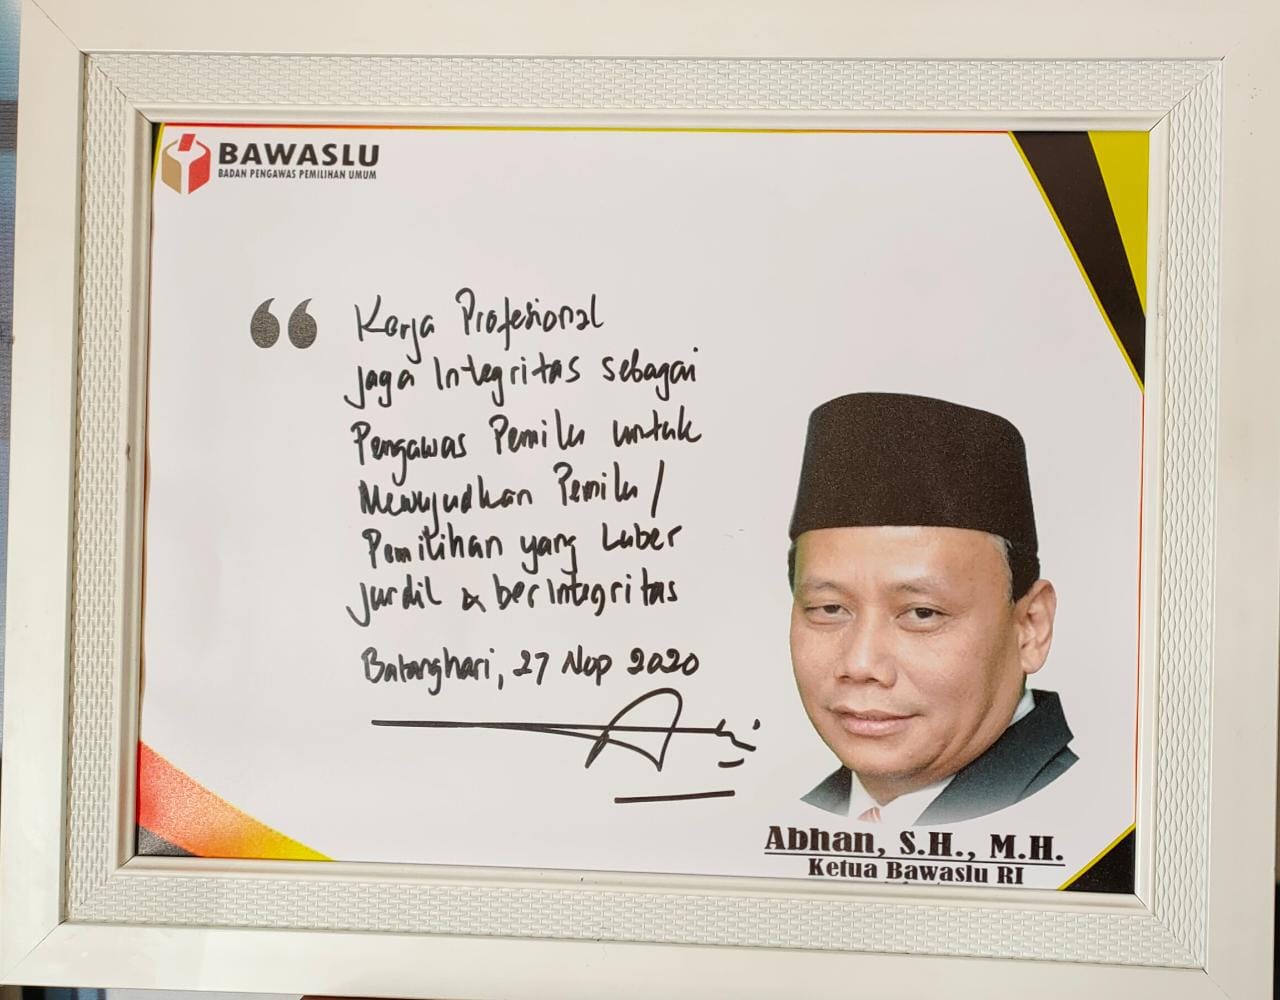 BAWASLU
BADAN PENGAWAS PEMILIHAN UMUM
“
Kerja Profesional
jaga Integritas sebagai
Pengawas Pemilu untuk
Mewujudkan Pemilu /
Pemilihan yang Luber
Jurdil & berIntegritas
Batanghari, 27 Nop 2020
Abhan, S.H., M.H.
Ketua Bawaslu RI